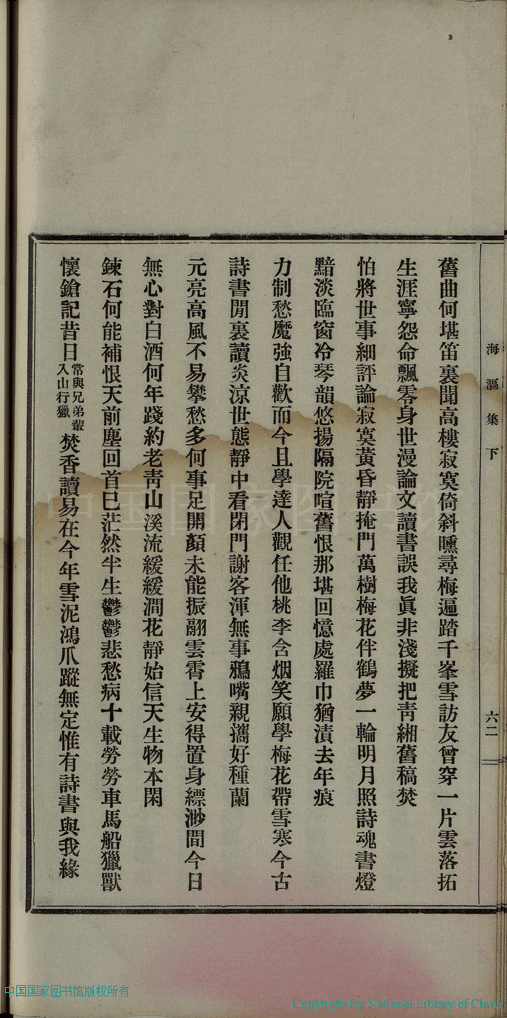 海漚集下
六二
舊曲何堪笛裏聞高樓寂寞倚斜曛尋梅遍踏千峯雪訪友曾穿一片雲落拓
生涯寧怨命飄零身世漫論文讀書誤我眞非淺擬把靑緗舊稿焚
怕將世事細評論寂寞黃昏靜掩門萬樹梅花伴鶴夢一輪明月照詩魂書燈
黯淡臨窗冷琴韻悠揚隔院喧舊恨那堪回憶處羅巾猶漬去年痕
力制愁魔強自歡而今且學達人觀任他桃李含烟笑願學梅花帶雪寒今古
詩書閒裏讀炎涼世態靜中看閉門謝客渾無事鴉嘴親攜好種蘭
元亮高風不易攀愁多何事足開顏未能振翮雲霄上安得置身縹渺間今日
無心對白酒何年踐約老靑山溪流緩緩澗花靜始信天生物本閑
鍊石何能補恨天前塵回首已茫然半生鬱鬱悲愁病十載勞勞車馬船獵獸
懷鎗記昔日當與兄弟輩入山行獵焚香讀易在今年雪泥鴻爪蹤無定惟有詩書與我緣
中国国家图书馆版权所有
Copyright by National Library of China